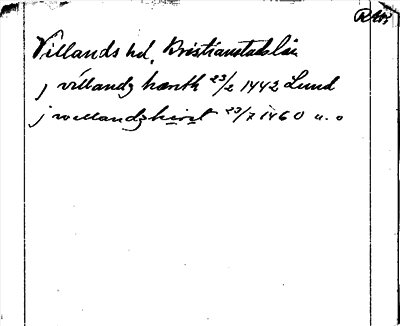 Villands hd, Kristianstads län
j villandz hærith 23/2 1442 Lund
j willandzhirit 23/7 1460 u. o